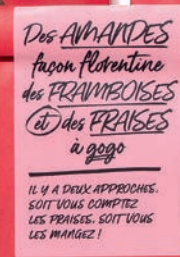 Des AMANDES
façon florentine
des FRAMBOISES
et des FRAISES
à gogo
IL Y A DEUX APPROCHES.
SOIT VOUS COMPTEZ
LES FRAISES. SOIT VOUS
LES MANGEZ !